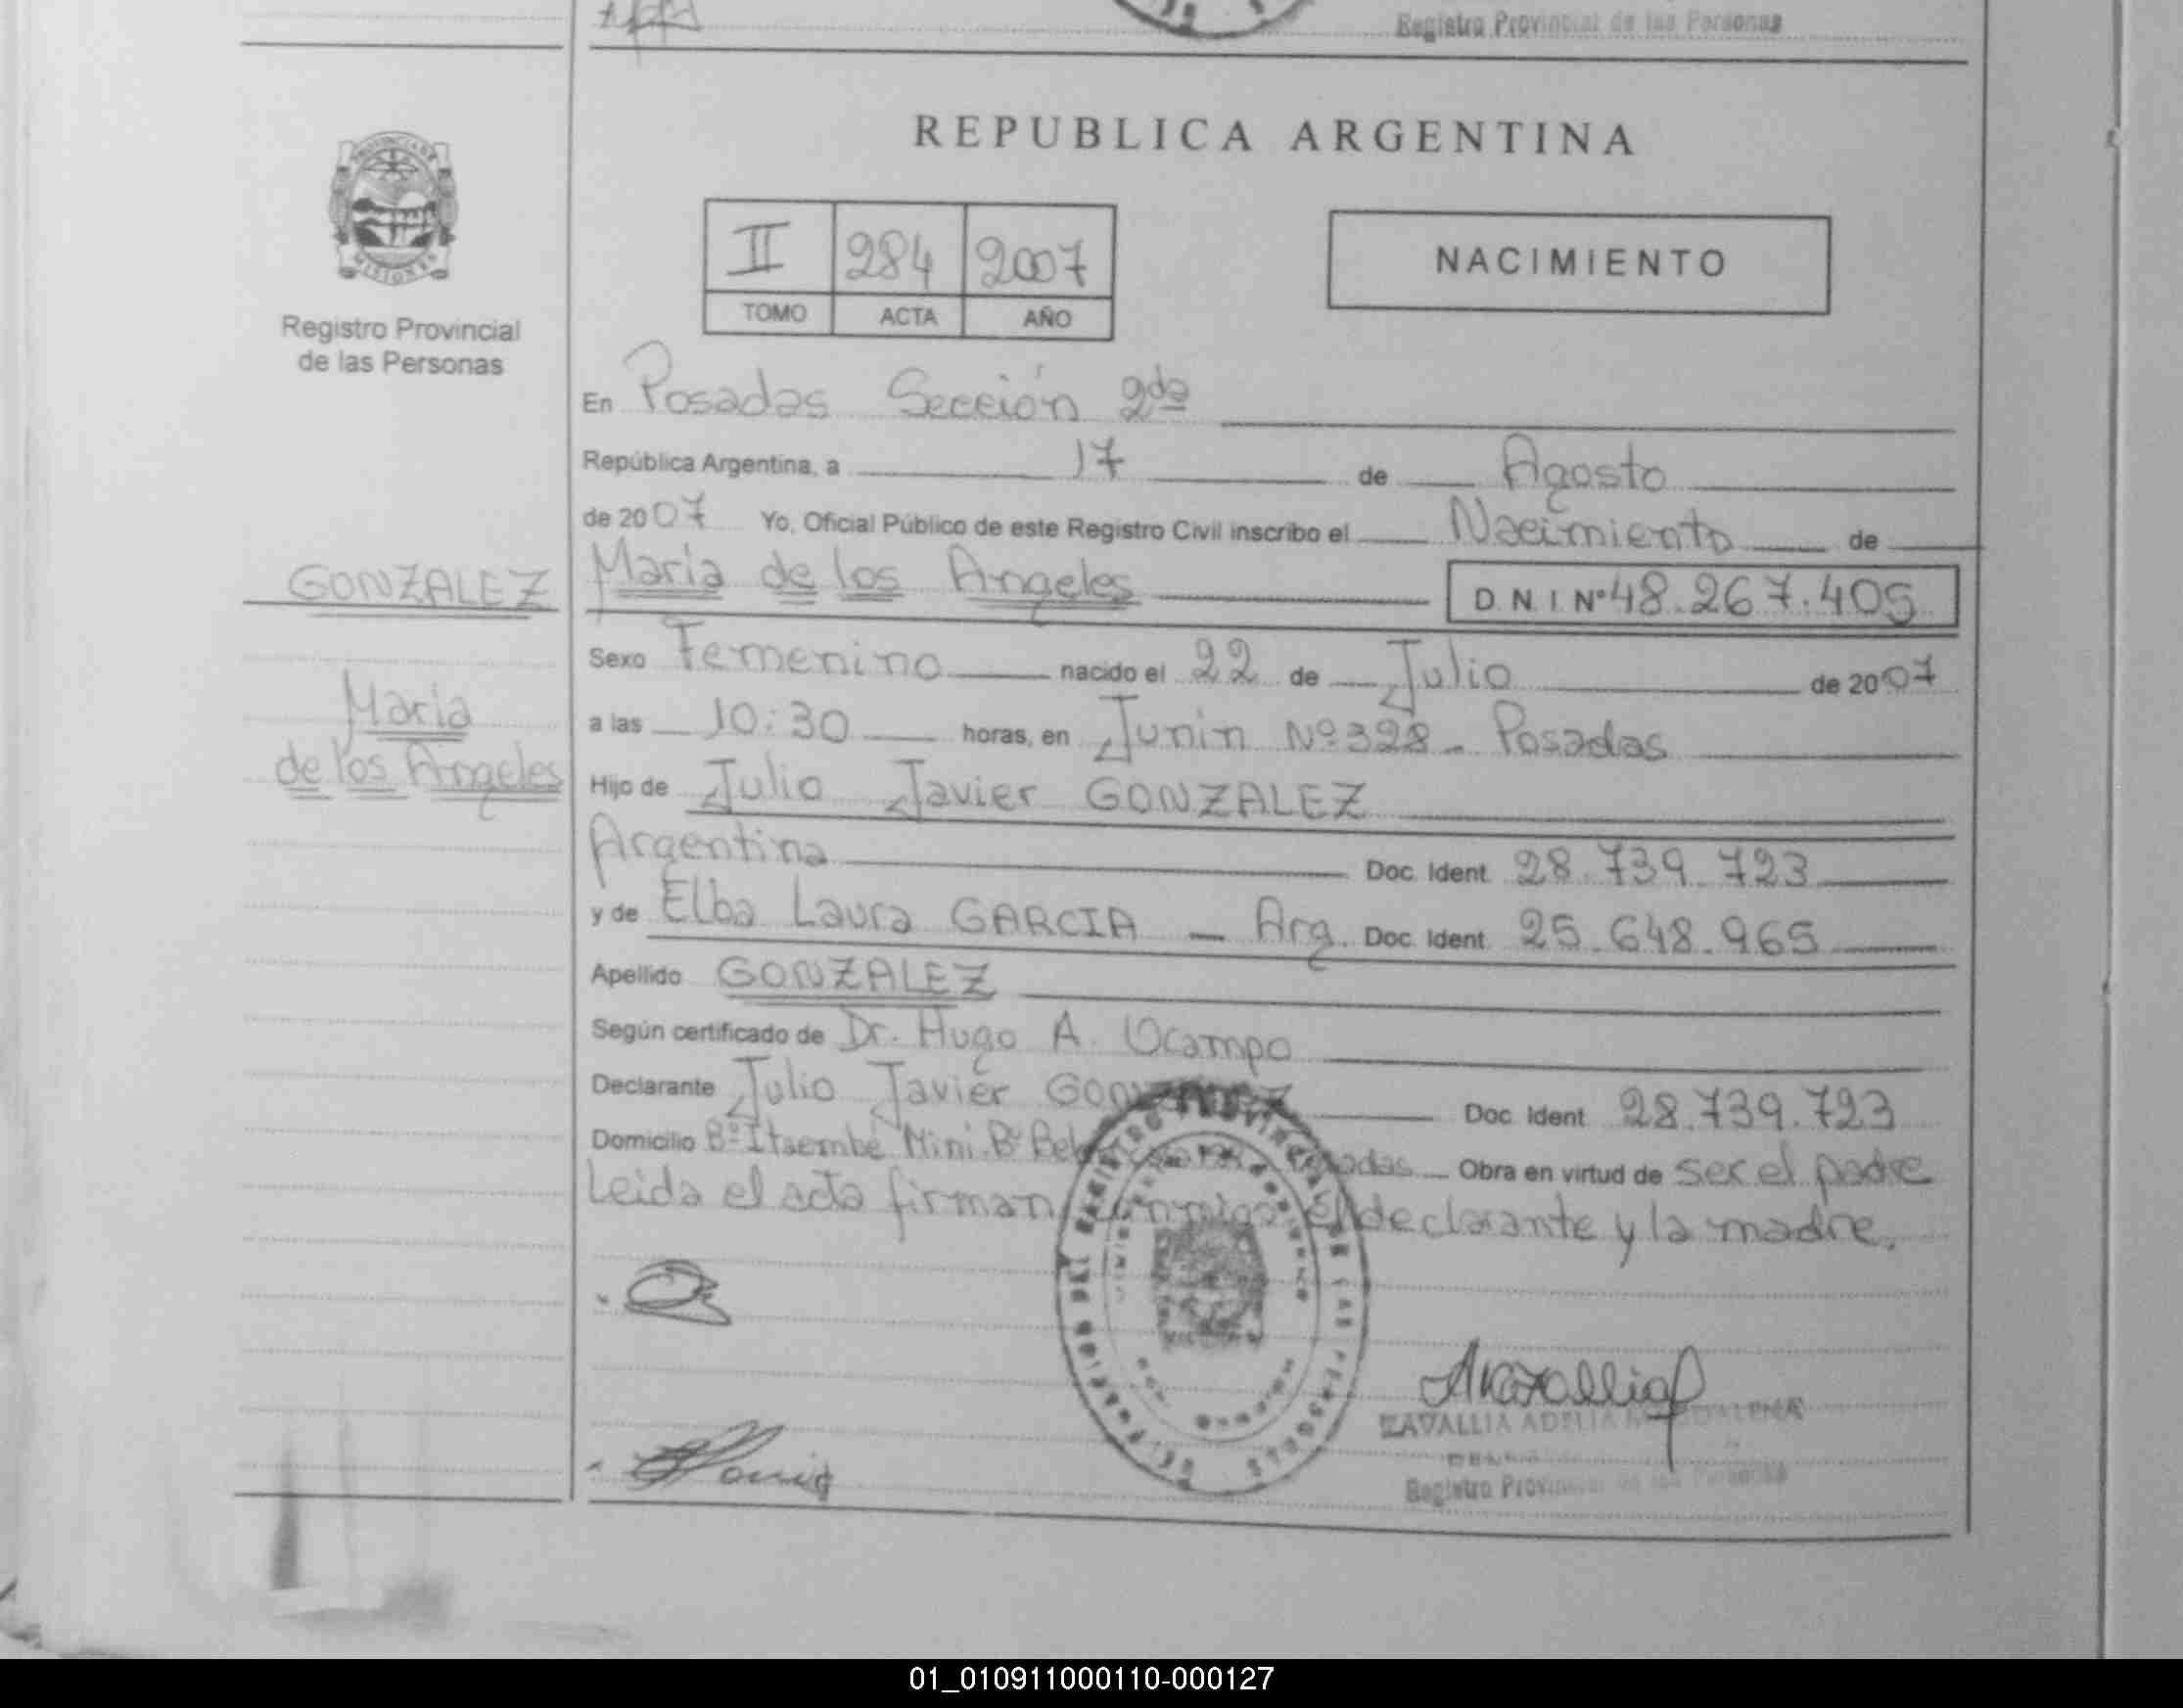 Registro Provincial de las Personas
REPUBLICA ARGENTINA
PROVINCIA DE
MISIONES
Registro Provincial
de las Personas
II 284 2007
TOMO ACTA AÑO
NACIMIENTO
En Posadas Sección 2da
República Argentina, a 17 de Agosto
de 2007 Yo, Oficial Público de este Registro Civil inscribo el Nacimiento de
GONZALEZ María de los Angeles D.N.I Nº 48.267.405
Sexo Femenino nacido el 22 de Julio de 2007
María
de los Angeles
a las 10:30 horas, en Junin Nº 328 - Posadas
Hijo de Julio Javier GONZALEZ
Argentina Doc. Ident. 28.739.723
y de Elba Laura GARCIA - Arg. Doc. Ident. 25.648.965
Apellido GONZALEZ
Según certificado de Dr. Hugo A. Ocampo
Declarante Julio Javier GONZALEZ Doc. Ident 28.739.723
Domicilio Bº Itaembé Mini. Bº Posadas - Obra en virtud de ser el padre
Leida el acta firman conmigo el declarante y la madre.
ZAVALLIA ADELIA MAGDALENA
Registro Provincial de las Personas
01_010911000110-000127